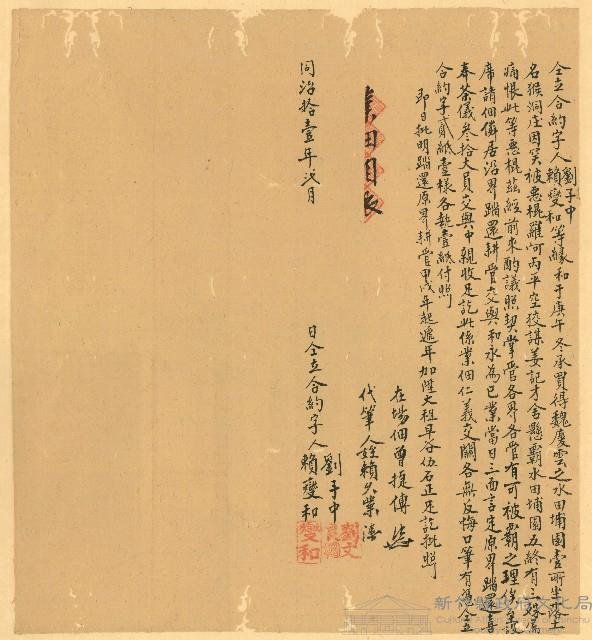 仝立合約字人劉子中
賴變和等緣和于庚午冬承買得魏慶雲之水田埔園壹所坐落土
名猴洞庄因笑被惡棍羅阿丙平空狡謀姜記才舍懸霸水田埔園五終有三殊為
痛恨此等惡棍茲經前來酌議照契掌管各界各管有可被霸之理後至設
席請佃隣居沿界踏還耕管交與和永為己業當日三面言定原界踏還喜
奉茶儀叁拾大員交與中親收足訖此係業佃仁義交關各無反悔口筆有憑仝立
合約字貳紙壹樣各執壹紙付照
即日批明踏還原界耕管甲戌年起遞年加陞大租早谷伍石正足訖批照
在場佃曾捷傳
代筆人姪賴久業
同治拾壹年弍月 日仝立合約字人劉子中
賴變和
劉文
變和
新竹縣政府文化局